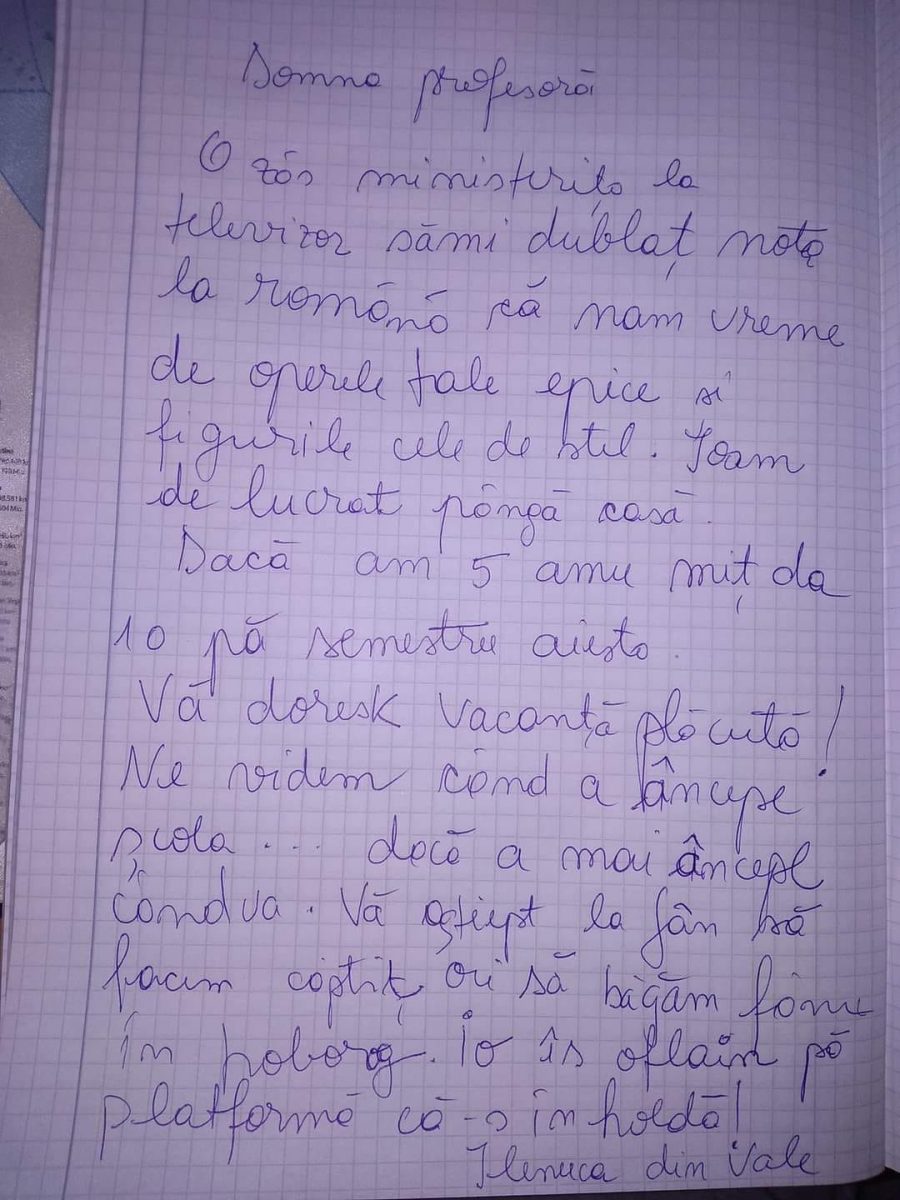 Domna profesoră
O zâs ministerițo la
televizor sămi dublaț nota
la română că nam vreme
de operele tale epice si
figurile cele de stil. Ioam
de lucrat pângă casă.
Dacă am 5 amu miț da
10 pă semestru aiesta.
Vă doresk vacanță plăcută!
Ne videm cönd a începe
școla .... dacă a mai âncepe
cândva. Vă aștiept la fân să
facim căptiț ori să băgăm fânu
în poborog. Io îs oflain pă
platformă că-s în holdă!
Ilenuca din Vale